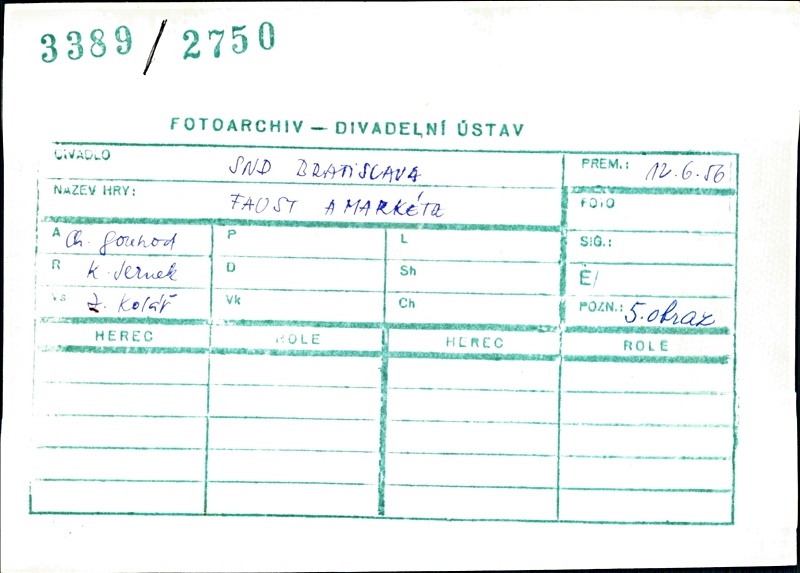 3389 / 2750
FOTOARCHIV — DIVADELNÍ ÚSTAV
DIVADLO SND BRATISLAVA PREM.: 12.6.56
NÁZEV HRY: FAUST A MARKÉTA FOTO
A Ch. Gounod P L SIG.:
R K. Jernek D Sh E/
Vs Z. Kolář Vk Ch POZN.: 5. obraz
HEREC ROLE HEREC ROLE